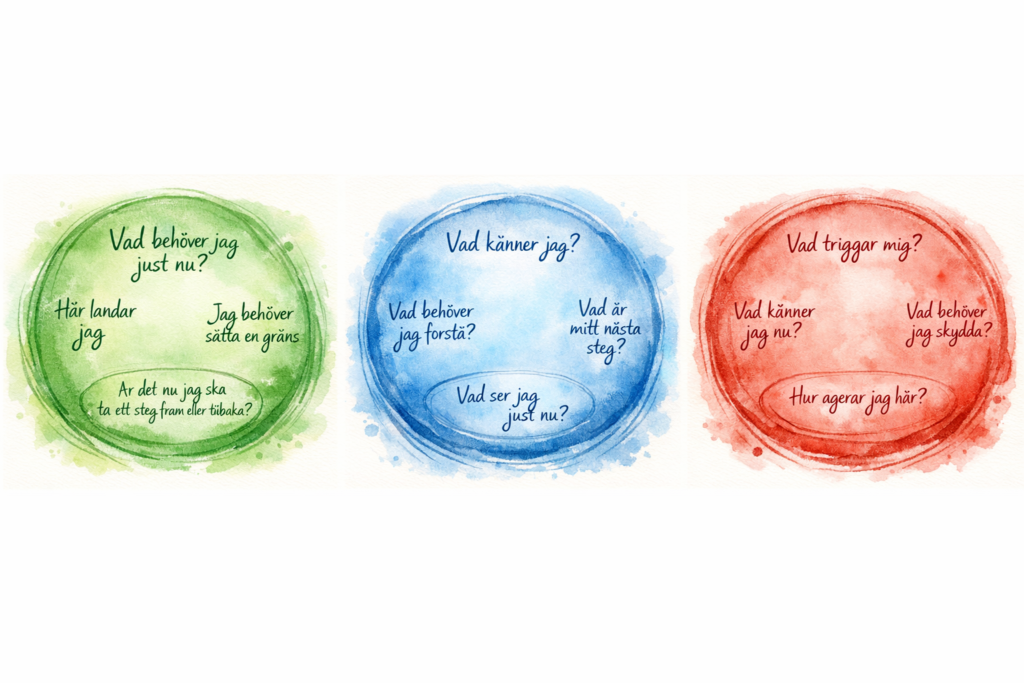 Vad behöver jag
just nu?
Här landar
jag
Jag behöver
sätta en gräns
Ar det nu jag ska
ta ett steg fram eller tiibaka?
Vad känner jag?
Vad behöver
jag forstå?
Vad är
mitt nästa
steg?
Vad ser jag
just nu?
Vad triggar mig?
Vad känner
jag nu?
Vad behöver
jag skydda?
Hur agerar jag här?